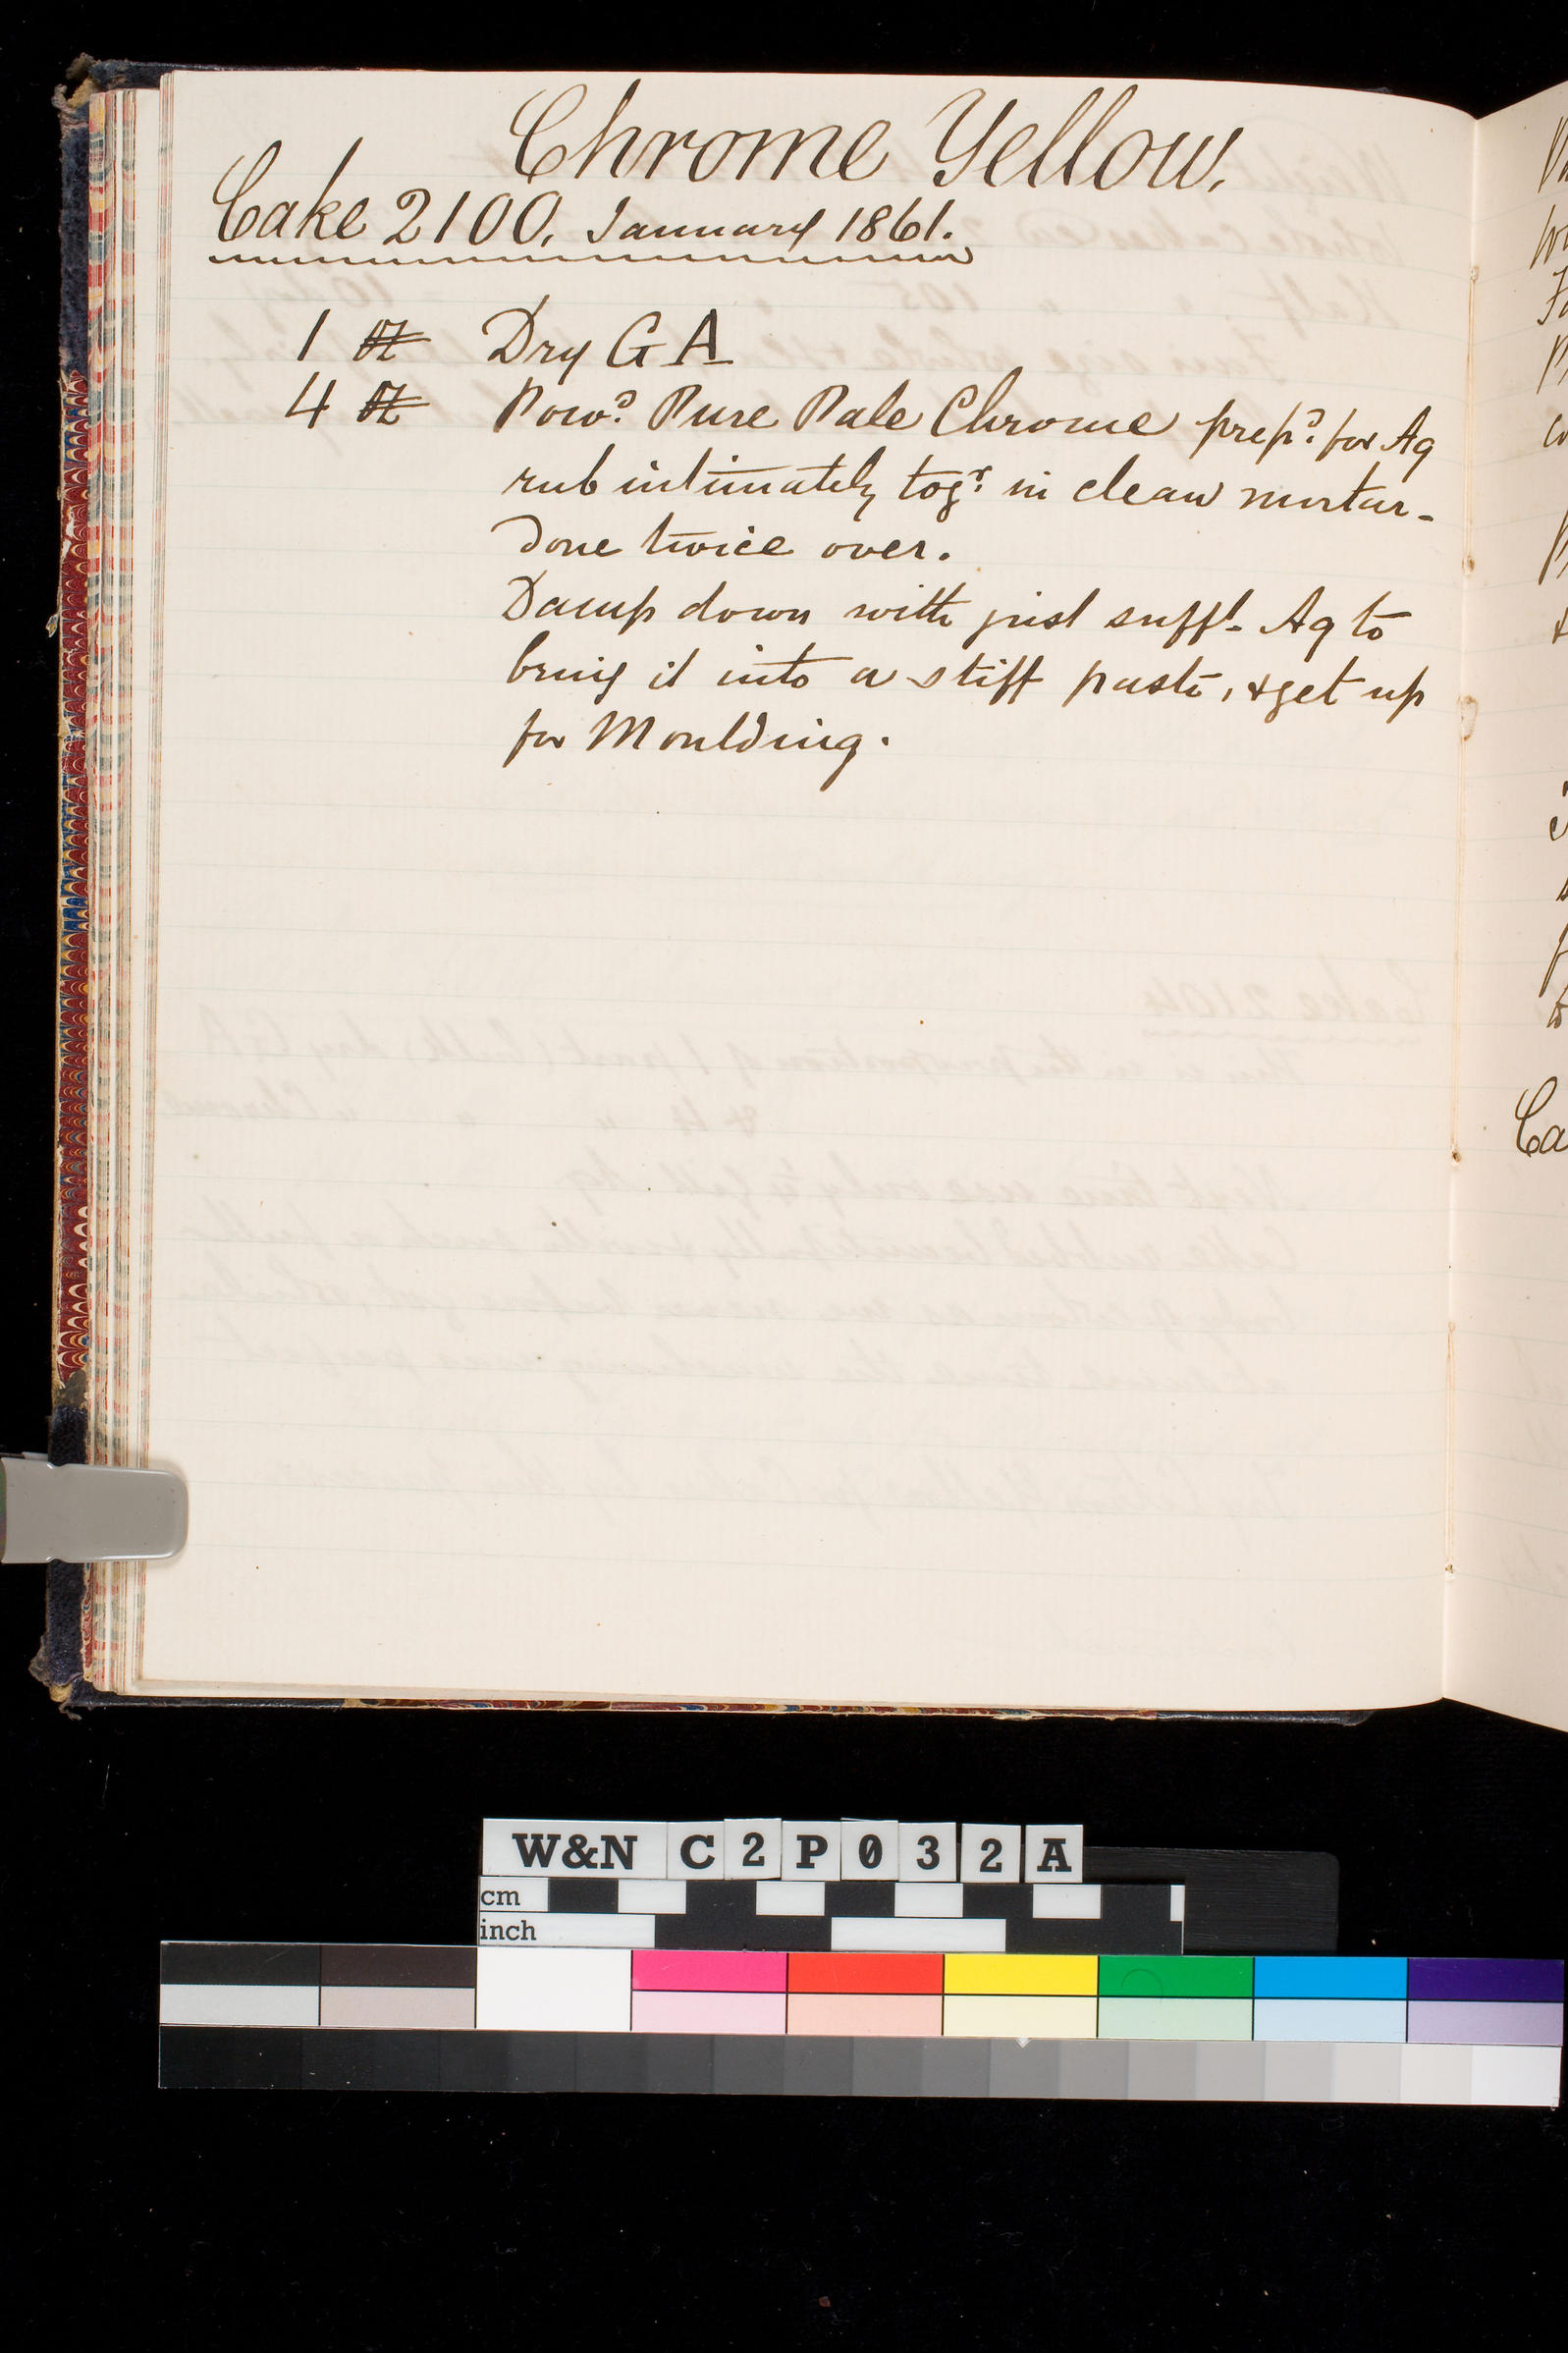 Chrome Yellow.
Cake 2100. January 1861.
1 lb Dry G A
4 lb Powd. Pure Pale Chrome prepd. for Aq
rub intimately togr. in clean mortar -
done twice over.
Damp down with just sufft. Aq to
bring it into a stiff paste, & get up
for Moulding.
W&N C2P032A
cm
inch